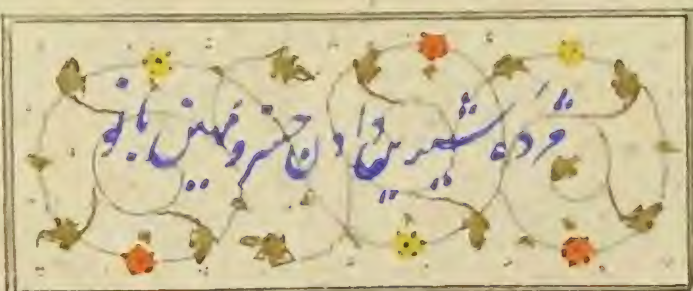 مژده شیرین دادن خسرو مهین بانو